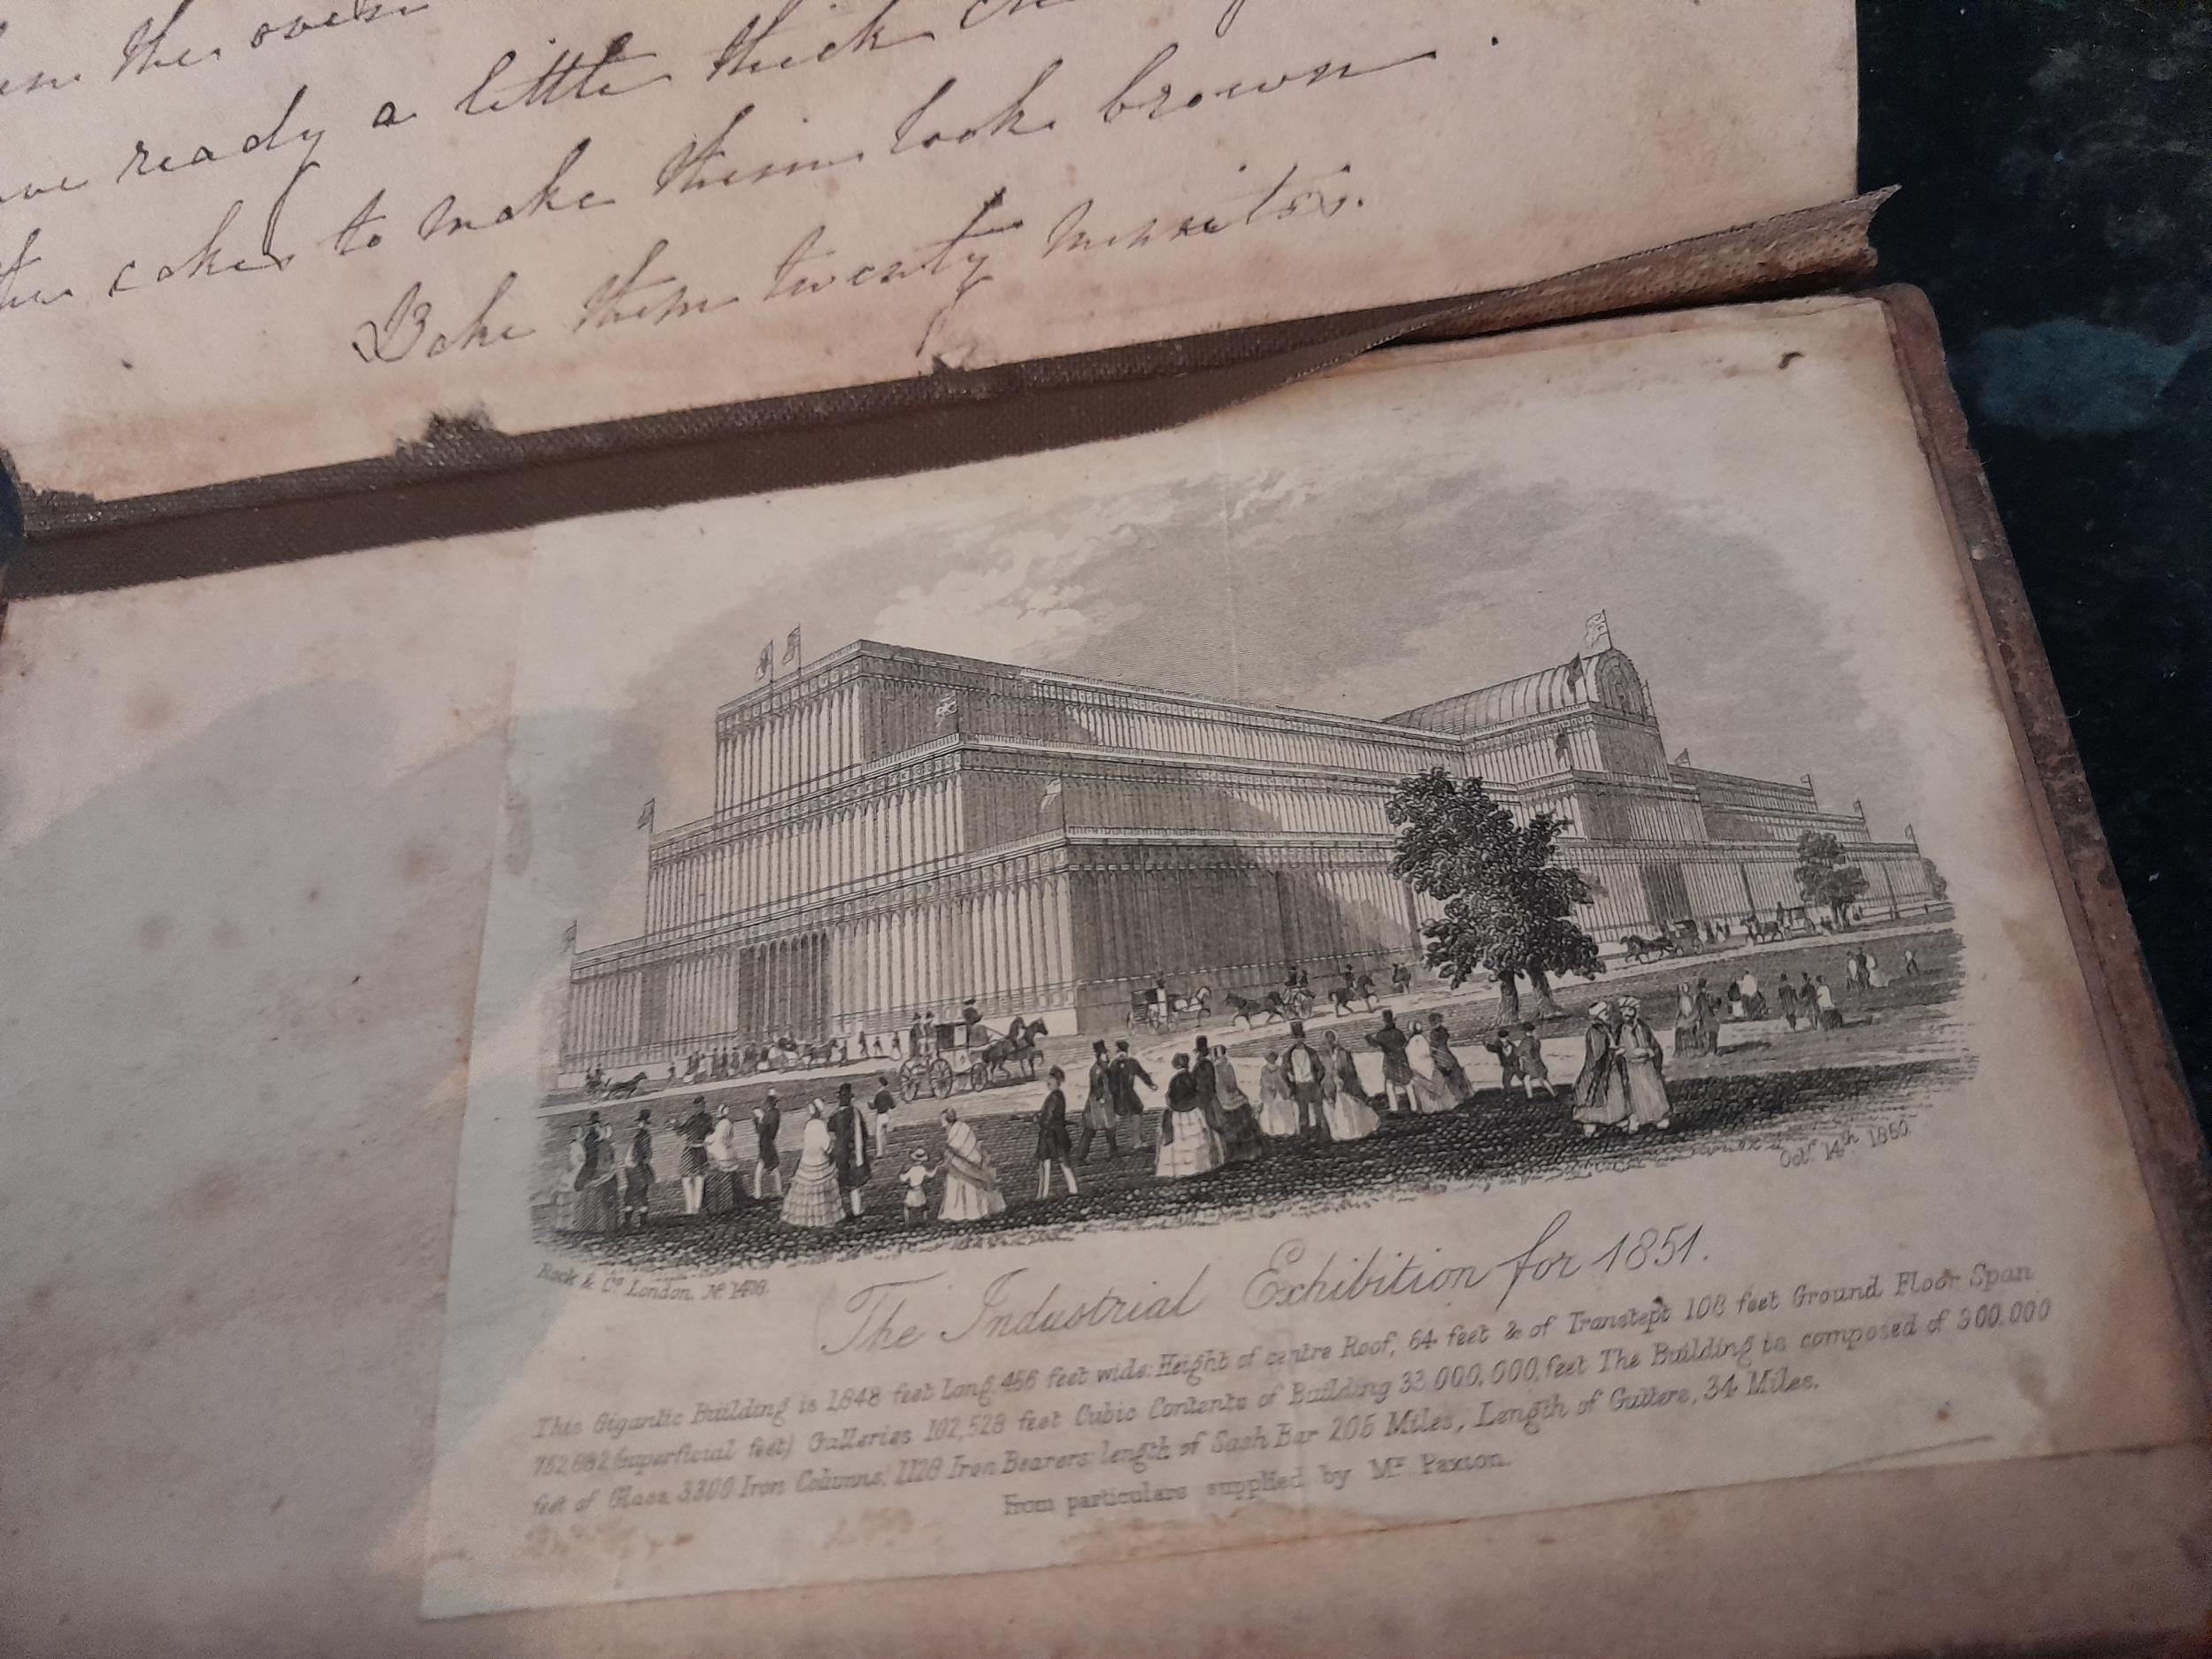 the oven
ready a little thick
cakes to make them look brown.
Bake them twenty minites.
Octr. 14th. 1850.
Rock & Co. London. No.
The Industrial Exhibition for 1851.
This Gigantic Building is 1848 feet Long, 456 feet wide: Height of centre Roof, 64 feet & of Transtept 108 feet Ground Floor Span
(superficial feet) Galleries 102,528 feet Cubic Contents of Building 33,000,000, feet The Building is composed of 900,000
feet of Glass, 3300 Iron Columns, 1128 Iron Bearers: length of Sash Bar 205 Miles, Length of Gutters, 34 Miles.
From particulars supplied by Mr. Paxton.